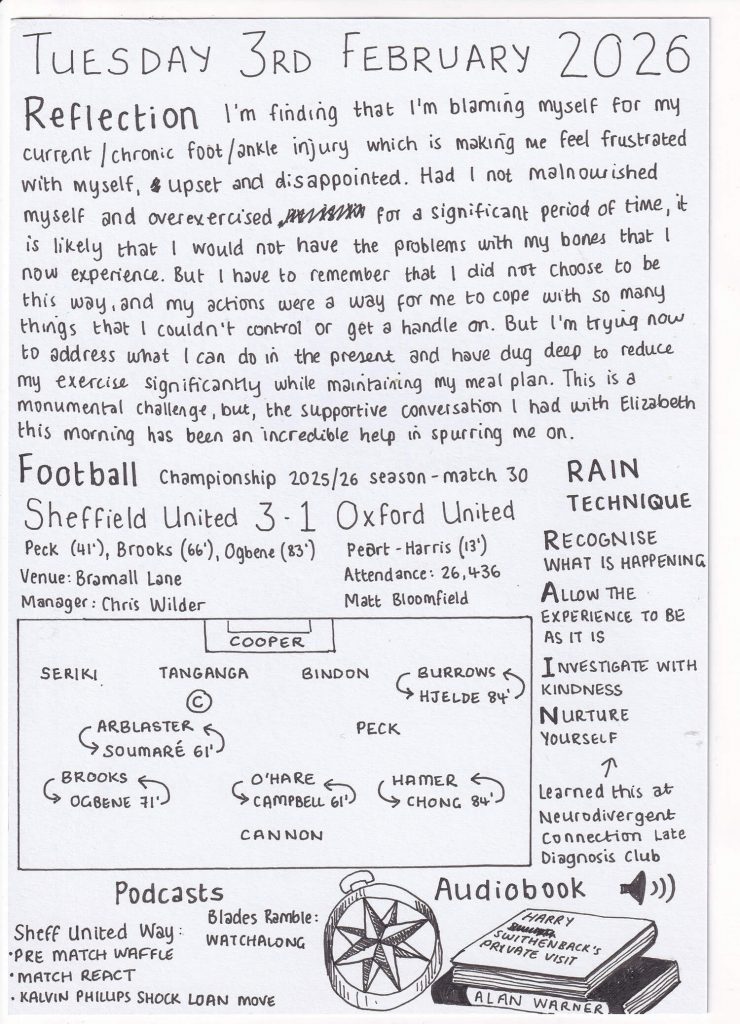 TUESDAY 3RD FEBRUARY 2026
Reflection I'm finding that I'm blaming myself for my
current/chronic foot/ankle injury which is making me feel frustrated
with myself, upset and disappointed. Had I not malnourished
myself and overexercised for a significant period of time, it
is likely that I would not have the problems with my bones that I
now experience. But I have to remember that I did not choose to be
this way, and my actions were a way for me to cope with so many
things that I couldn't control or get a handle on. But I'm trying now
to address what I can do in the present and have dug deep to reduce
my exercise significantly while maintaining my meal plan. This is a
monumental challenge, but, the supportive conversation I had with Elizabeth
this morning has been an incredible help in spurring me on.
Football Championship 2025/26 season - match 30
Sheffield United 3-1 Oxford United
Peck (41'), Brooks (66'), Ogbene (83') Peart-Harris (13')
Venue: Bramall Lane Attendance: 26,436
Manager: Chris Wilder Matt Bloomfield
COOPER
SERIKI TANGANGA BINDON BURROWS
HJELDE 84'
C
ARBLASTER PECK
SOUMARÉ 61'
BROOKS O'HARE HAMER
OGBENE 71' CAMPBELL 61' CHONG 84'
CANNON
RAIN
TECHNIQUE
RECOGNISE
WHAT IS HAPPENING
ALLOW THE
EXPERIENCE TO BE
AS IT IS
INVESTIGATE WITH
KINDNESS
NURTURE
YOURSELF
Learned this at
Neurodivergent
Connection Late
Diagnosis Club
Podcasts
Sheff United Way:
• PRE MATCH WAFFLE
• MATCH REACT
• KALVIN PHILLIPS SHOCK LOAN MOVE
Blades Ramble:
WATCHALONG
Audiobook
HARRY
SWITHENBACK'S
PRIVATE VISIT
ALAN WARNER